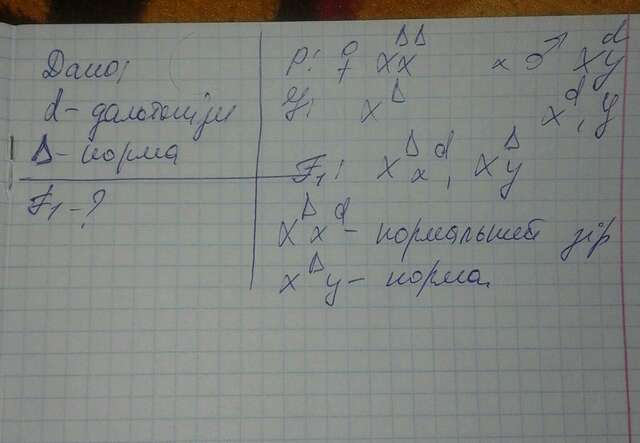 Дано:
d - дальтонізм
D - норма
F₁ - ?
P: ♀ XᴰXᴰ x ♂ Xᵈy
G: Xᴰ Xᵈ, y
F₁: XᴰXᵈ, Xᴰy
XᴰXᵈ - нормальний зір
Xᴰy - норма.